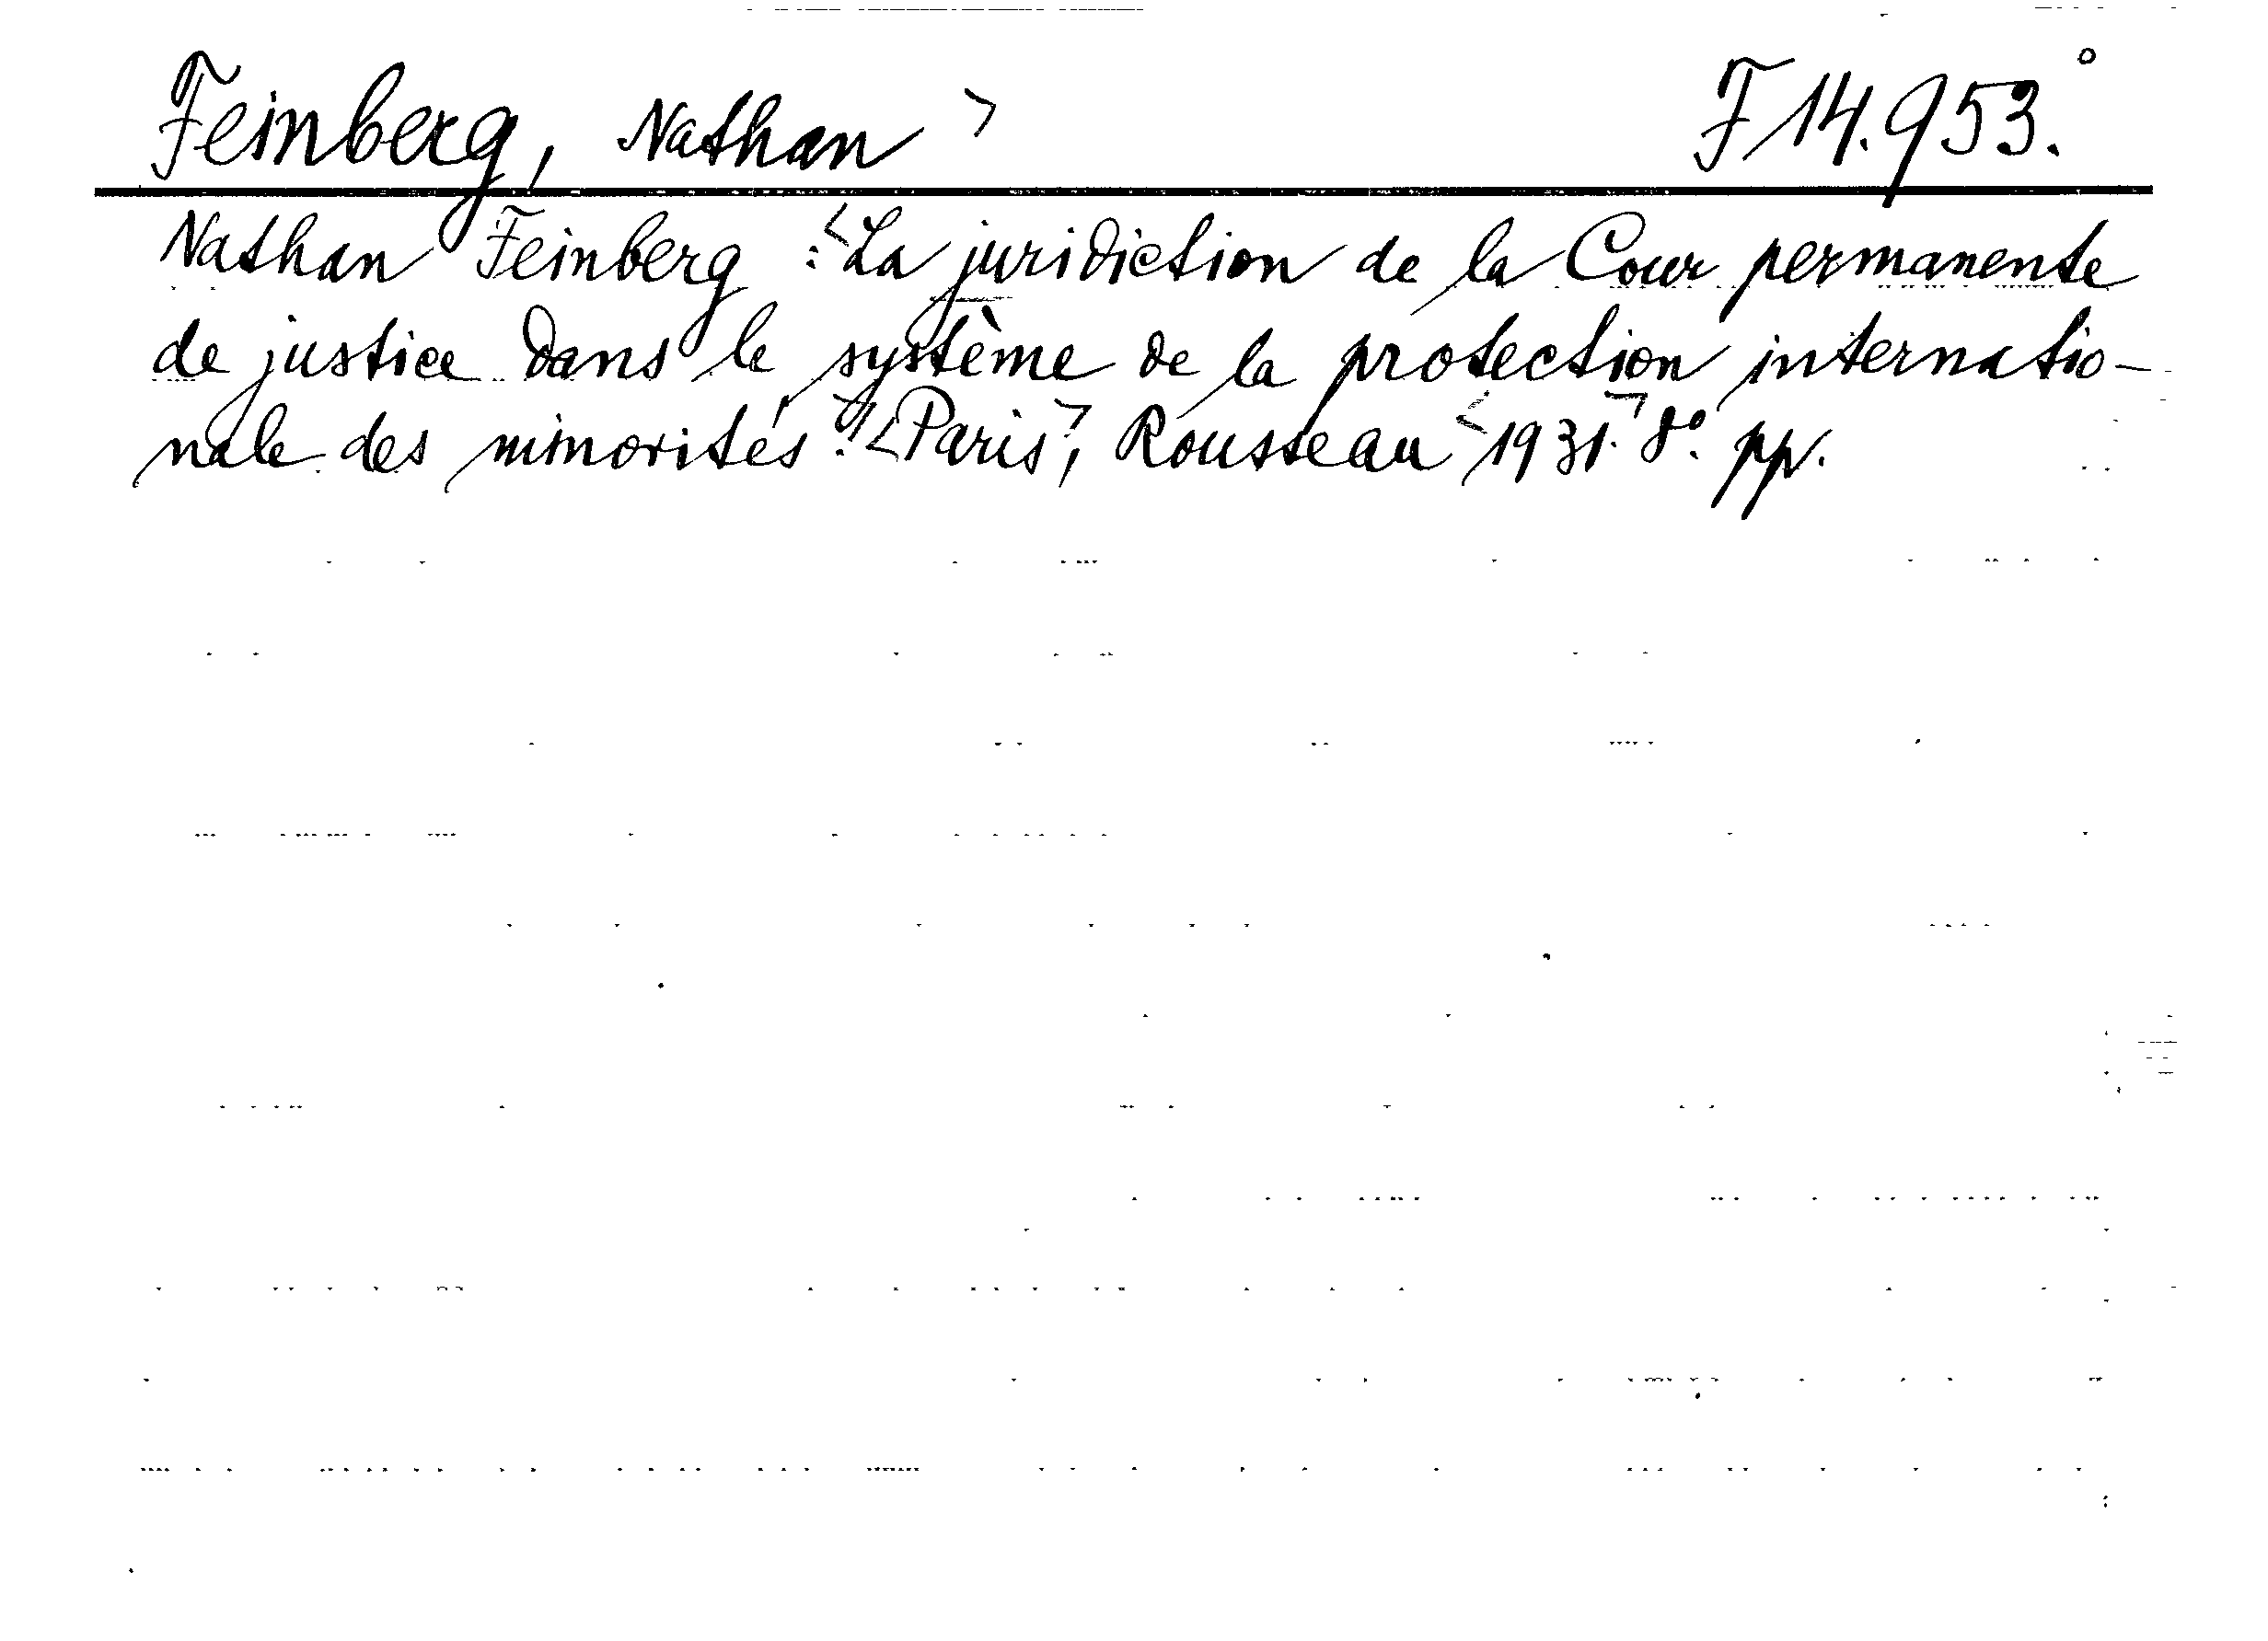 Feinberg, Nathan > F 14.953.°
Nathan Feinberg : <La juridiction de la Cour permanente
de justice dans le système de la protection internatio-
nale des minorités.> <Paris>, Rousseau <1931.> 8°. pp.